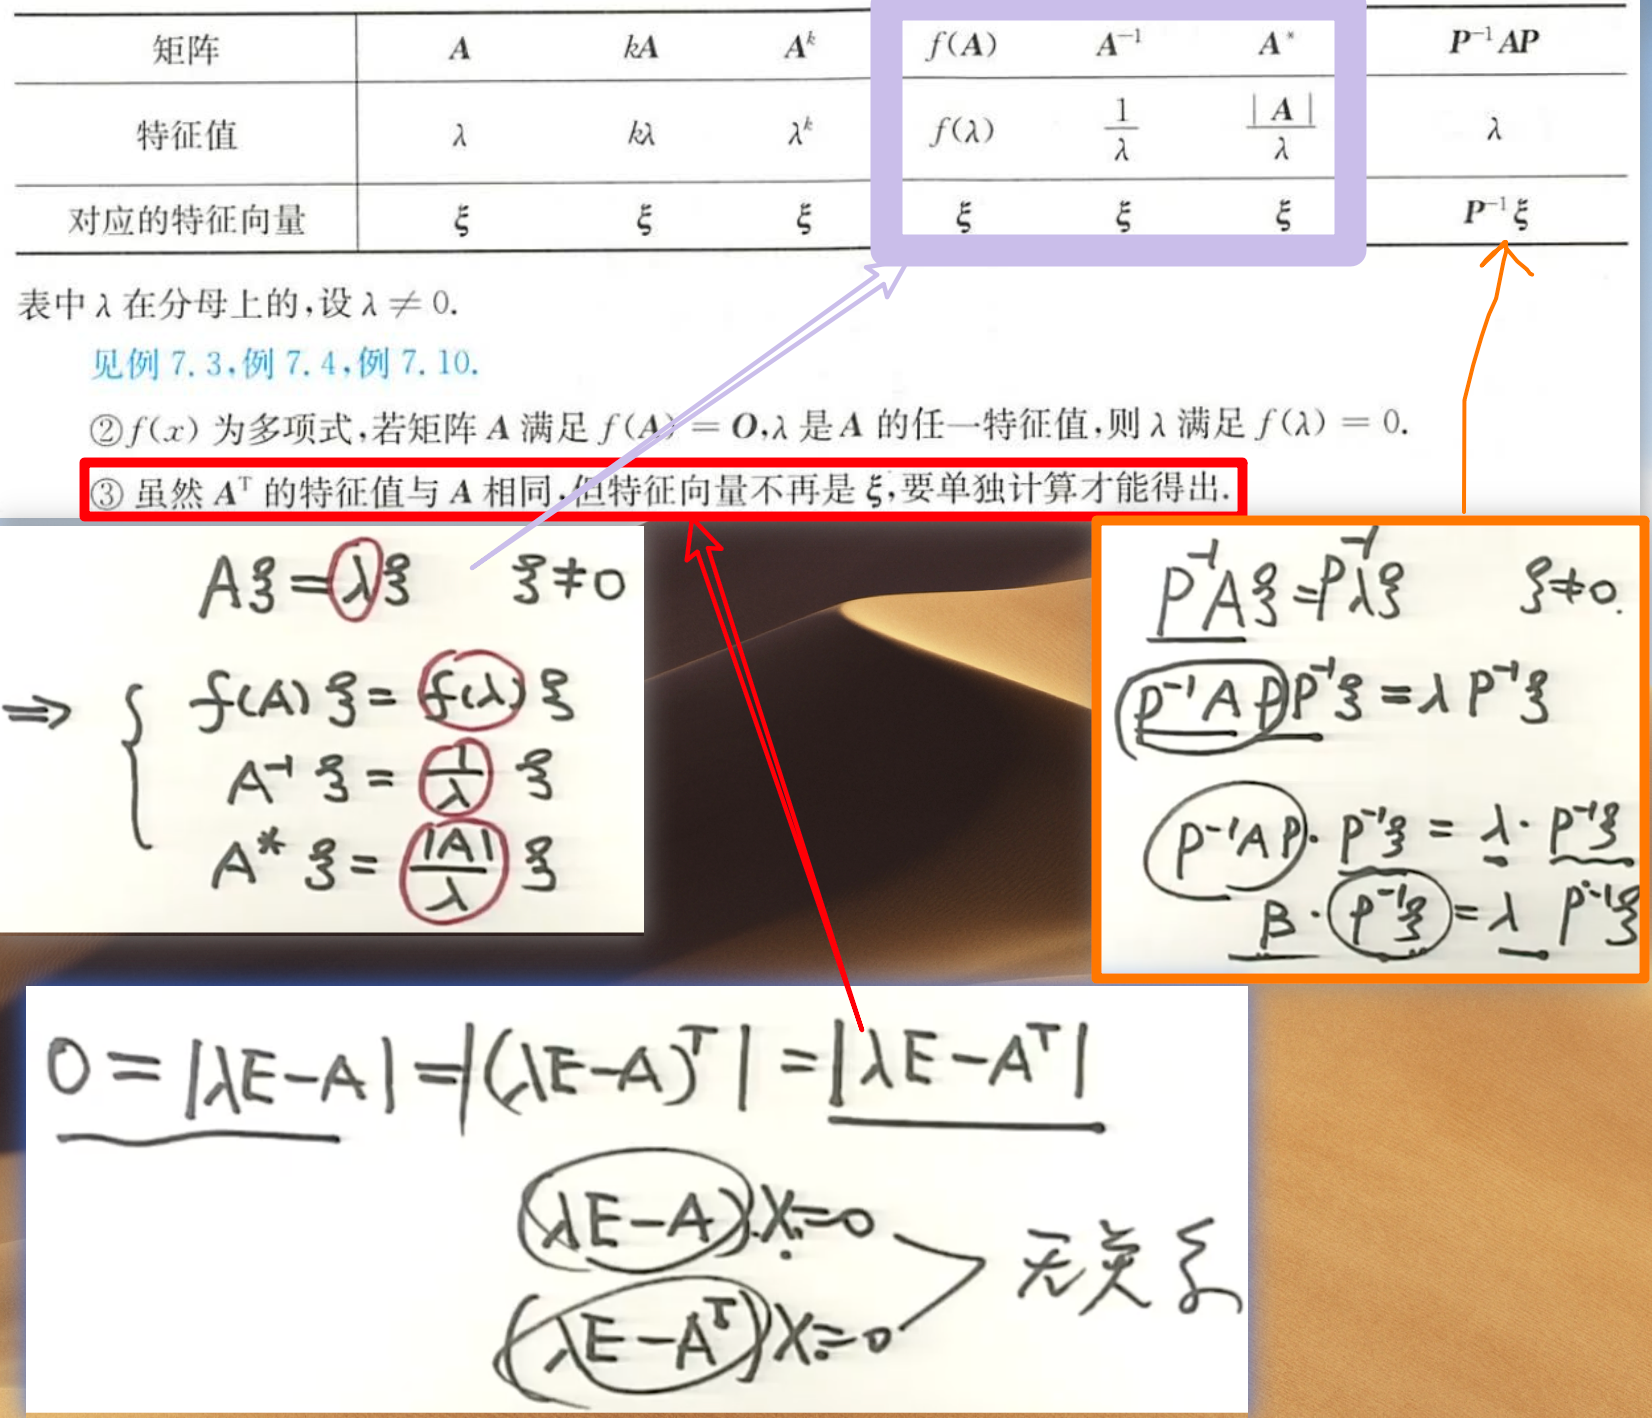 矩阵 A kA Aᵏ f(A) A⁻¹ A* P⁻¹AP
特征值 λ kλ λᵏ f(λ) 1/λ |A|/λ λ
对应的特征向量 ξ ξ ξ ξ ξ ξ P⁻¹ξ
表中 λ 在分母上的,设 λ ≠ 0.
见例 7.3,例 7.4,例 7.10.
②f(x) 为多项式,若矩阵 A 满足 f(A) = O,λ 是 A 的任一特征值,则 λ 满足 f(λ) = 0.
③ 虽然 Aᵀ 的特征值与 A 相同,但特征向量不再是 ξ,要单独计算才能得出.
Aξ=λξ ξ≠0
⇒ { f(A)ξ=f(λ)ξ
A⁻¹ξ=1/λ ξ
A*ξ=|A|/λ ξ
P⁻¹Aξ=P⁻¹λξ ξ≠0.
P⁻¹APP⁻¹ξ=λP⁻¹ξ
P⁻¹AP·P⁻¹ξ=λ·P⁻¹ξ
B·P⁻¹ξ=λ P⁻¹ξ
0=|λE-A|=|(λE-A)ᵀ|=|λE-Aᵀ|
(λE-A)X=0
(λE-Aᵀ)X=0
无关系